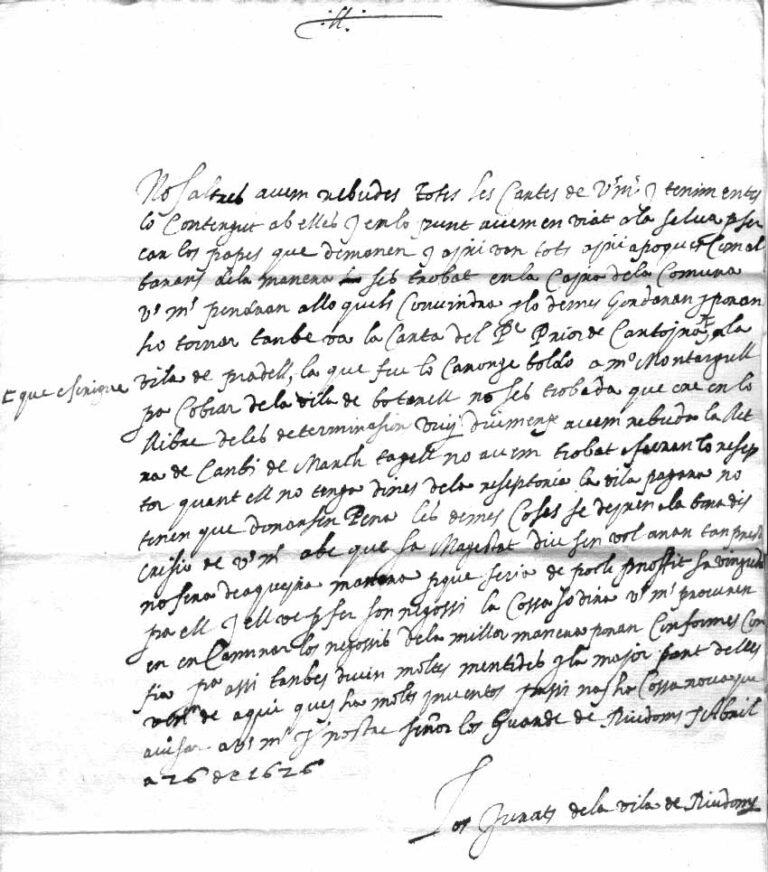 .ill.
Nosaltres avem rebudes totes les Cartes de Vs ms y tenim entes
lo Contengut ab elles y en lo punt avem enviat a la Selva p ser
car los papes que demanen y axi van tots axi a poques Com al
barans de la manera ses trobat en la Caxa de la Comuna
Vs ms pendran allo quels Convindra y lo demes Gordaran y poran
ho tornar tanbe va la Carta del Pe Prior de a la
vila de pradell, la que feu lo Canonge boldo a mo Montargull
pa Cobrar de la vila de botarell no ses trobada que ere en lo
E que
llibre de les determinasions vuy diumenge avem rebuda la llet
ra de Canbi de March no avem trobat lo resep
tor quant ell no tenga dines de la reseptoria la vila pagara no
tenen que donarsen Pena les demes Coses se dexen a la bona dis
Cresio de Vs ms abe que sa Magestat diu sen vol anar tan prest
no sera de aquexa manera pque seria de poch profit sa vinguda
pa ell y ell ve p fer son negossi la Cossa Vs ms procuren
en en Caminar los negossis de la millor manera poran Conformes Con
fia pa assi tanbes diuen moltes mentides y la major part delles
venen de aqui que y ha molts assi no y ha Cossa nova que
avisar a Vs ms y nostre señor los Guarde de Riudoms y Abril
a 26 de 1626
Los Jurats de la vila de Riudoms